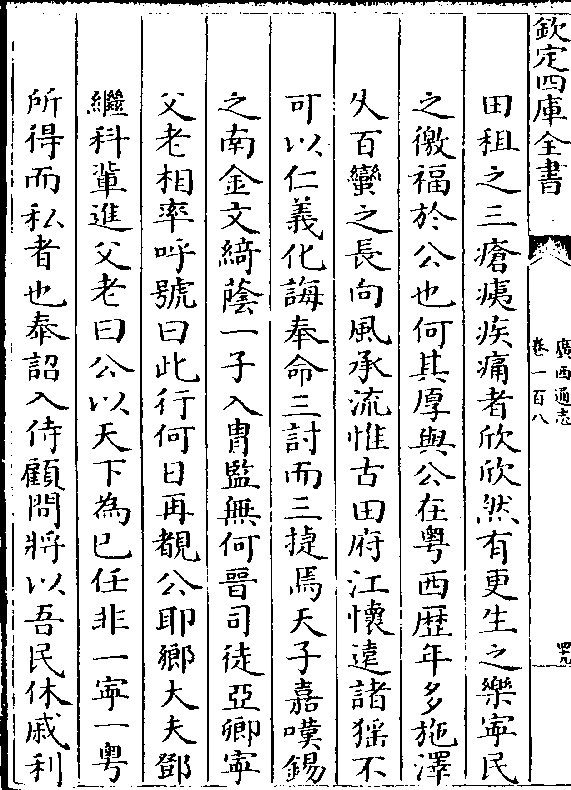 欽定四庫全書
廣西通志
卷一百八
四九
田租之三瘡痍疾痛者欣欣然有更生之樂寜民
之徼福於公也何其厚與公在粤西歴年多施澤
久百蠻之長向風承流惟古田府江懐逺諸猺不
可以仁義化誨奉命三討而三捷焉天子嘉嘆錫
之南金文綺蔭一子入胄監無何晉司徒亞卿寜
父老相率呼號曰此行何日再覩公耶鄉大夫鄧
繼科軰進父老曰公以天下為己任非一寜一粤
所得而私者也奉詔入侍顧問将以吾民休戚利